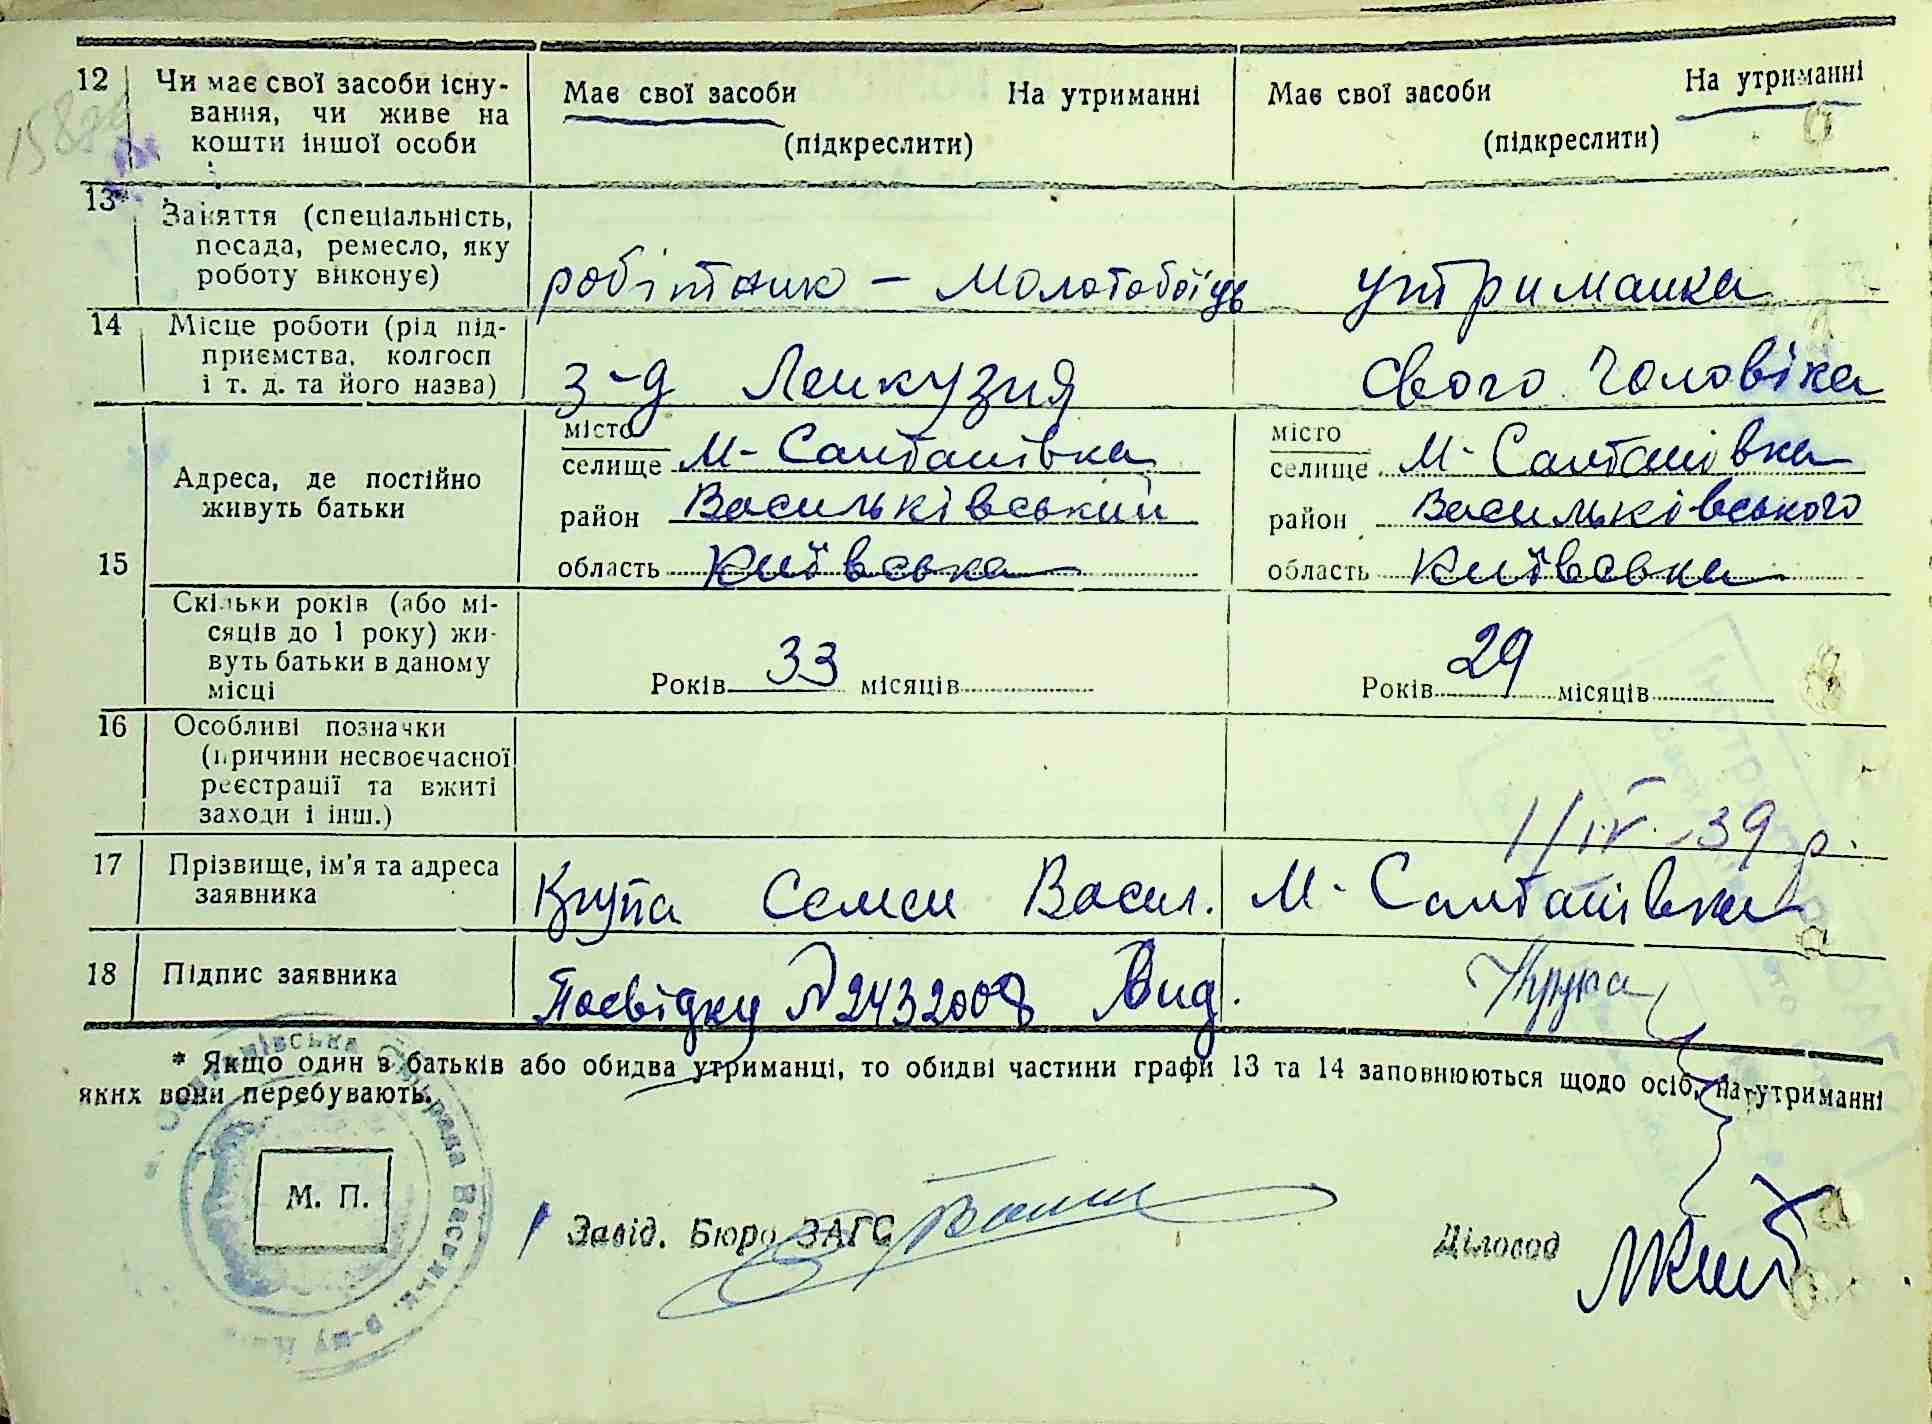 12 Чи має свої засоби існу-
вання, чи живе на
кошти іншої особи
Має свої засоби На утриманні
(підкреслити)
Має свої засоби На утриманні
(підкреслити)
13* Заняття (спеціальність,
посада, ремесло, яку
роботу виконує)
робітник – Молотобоїць
утриманка
14 Місце роботи (рід під-
приємства, колгосп
і т. д. та його назва)
з-д Ленкузня
свого чоловіка
15 Адреса, де постійно
живуть батьки
місто
селище М-Салтанівка
район Васильківський
область Київська
місто
селище М-Салтанівка
район Васильківського
область Київська
Скільки років (або мі-
сяців до 1 року) жи-
вуть батьки в даному
місці
Років 33 місяців
Років 29 місяців
16 Особливі позначки
(причини несвоєчасної
реєстрації та вжиті
заходи і інш.)
1/IV-39 р.
17 Прізвище, ім'я та адреса
заявника
Крупа Семен Васил. М-Салтанівка
18 Підпис заявника
Посвідку №2432008 Вид. Крупа
* Якщо один з батьків або обидва утриманці, то обидві частини графи 13 та 14 заповнюються щодо осіб, на утриманні
яких вони перебувають.
М. П.
Завід. Бюро ЗАГС
Діловод